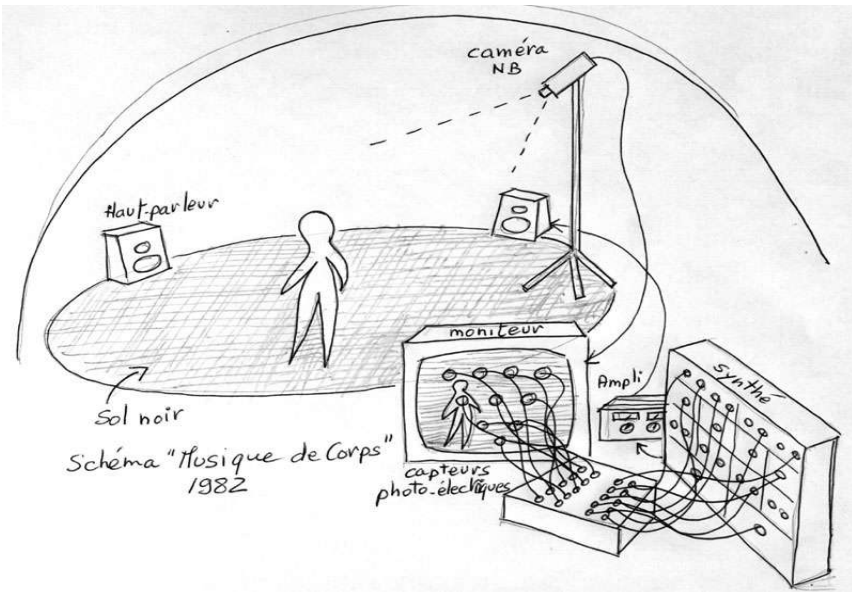 caméra
NB
Haut-parleur
moniteur
Ampli
Synthé
Sol noir
Schéma "Musique de Corps"
1982
capteurs
photo-électriques